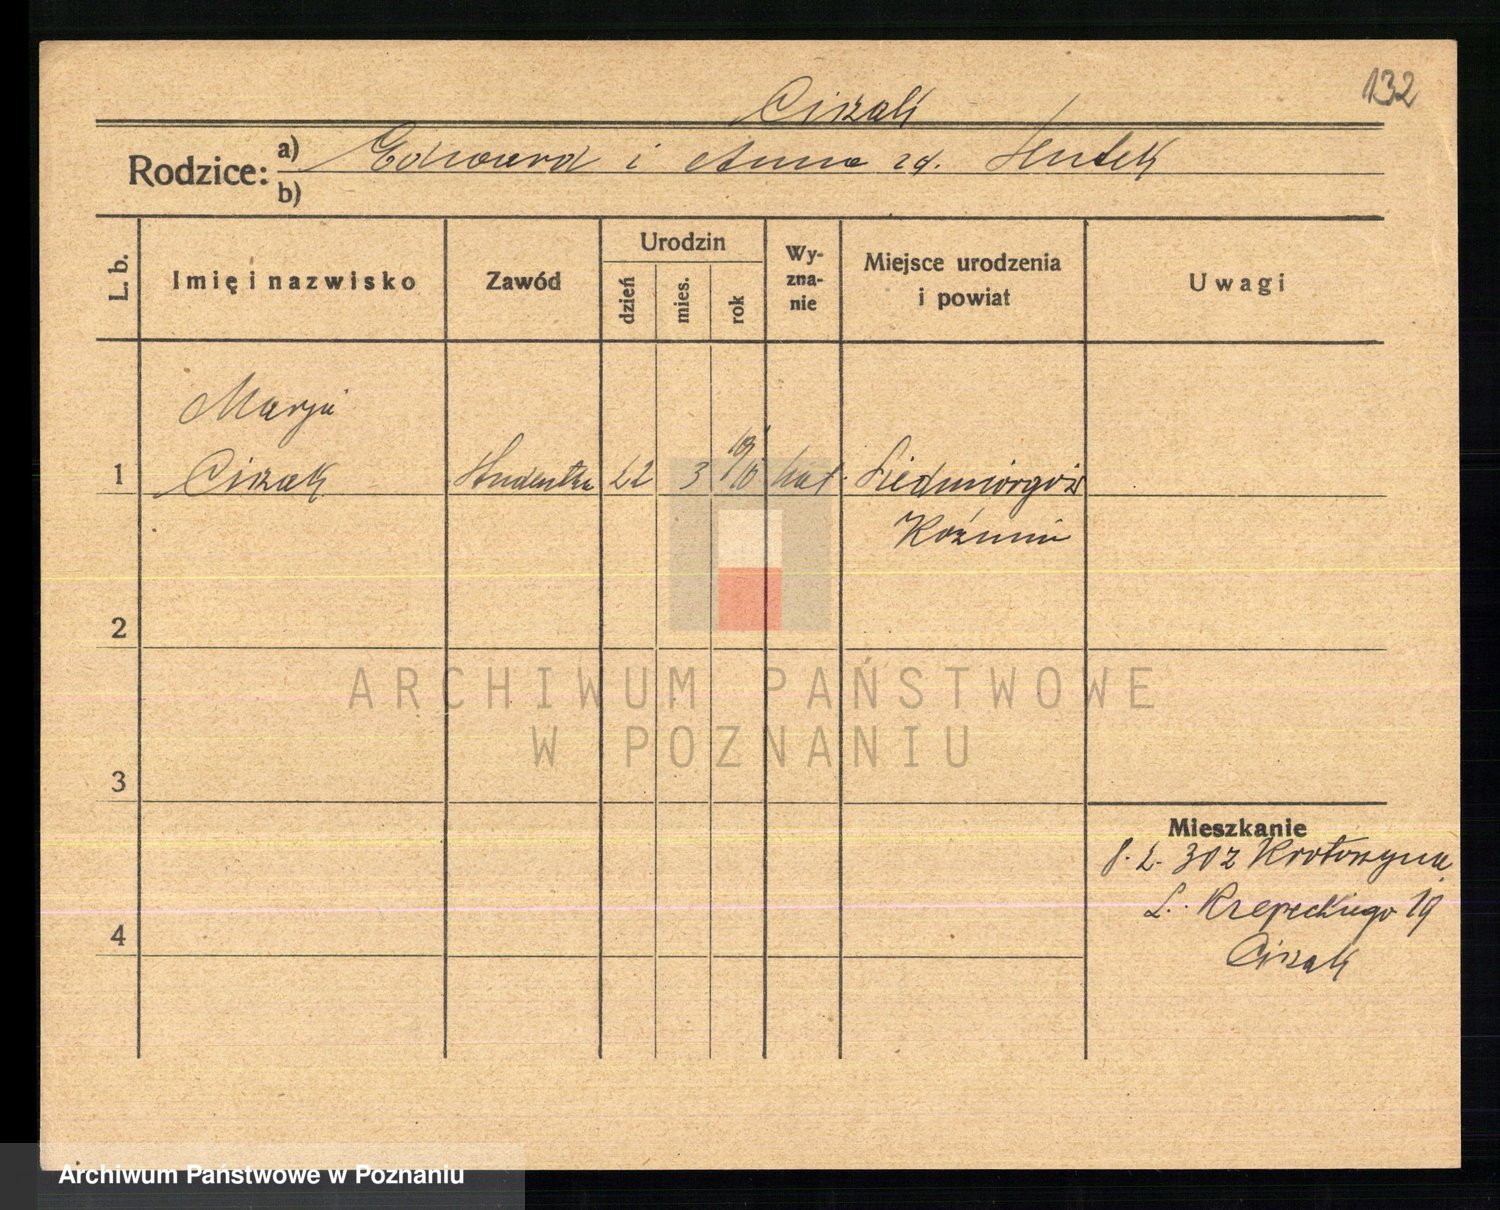 132
Ciszak
Rodzice: a) Edward i Anna zd. Hutek
b)
L. b.
Imię i nazwisko
Zawód
Urodzin
dzień
mies.
rok
Wy-
zna-
nie
Miejsce urodzenia
i powiat
Uwagi
Marja
1 Ciszak Studentka 22 3 1910 kat. Siedmiorogów
Koźmin
2
3
4
Mieszkanie
302 Krotoszyna
Rzepeckiego 19
Ciszak
ARCHIWUM PAŃSTWOWE
W POZNANIU
Archiwum Państwowe w Poznaniu